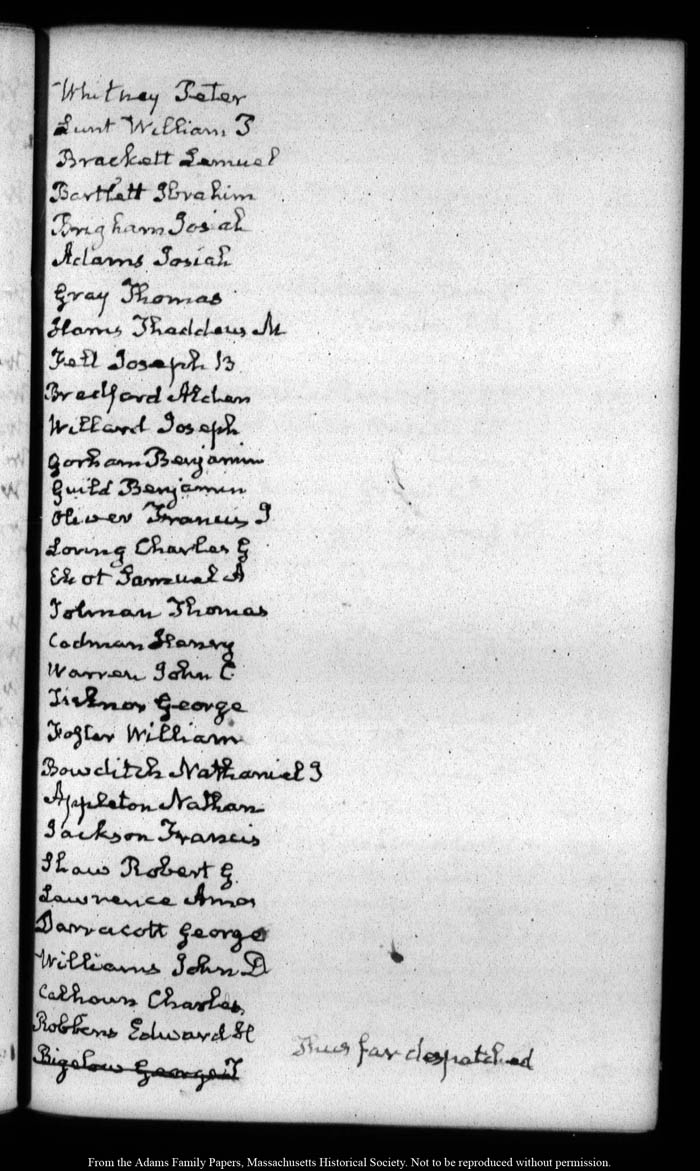 Whitney Peter
Lunt William P
Brackett Lemuel
Bartlett Ibrahim
Brigham Josiah
Adams Josiah
Gray Thomas
Harris Thaddeus M
Felt Joseph B
Bradford Alden
Willard Joseph
Gorham Benjamin
Guild Benjamin
Oliver Francis J
Loring Charles G
Eliot Samuel A
Tolman Thomas
Codman Henry
Warren John C
Ticknor George
Foster William
Bowditch Nathaniel I
Appleton Nathan
Jackson Francis
Shaw Robert G
Lawrence Amos
Darracott George
Williams John D
Calhoun Charles
Robbins Edward H
Bigelow George T
Thus far despatched
From the Adams Family Papers, Massachusetts Historical Society. Not to be reproduced without permission.